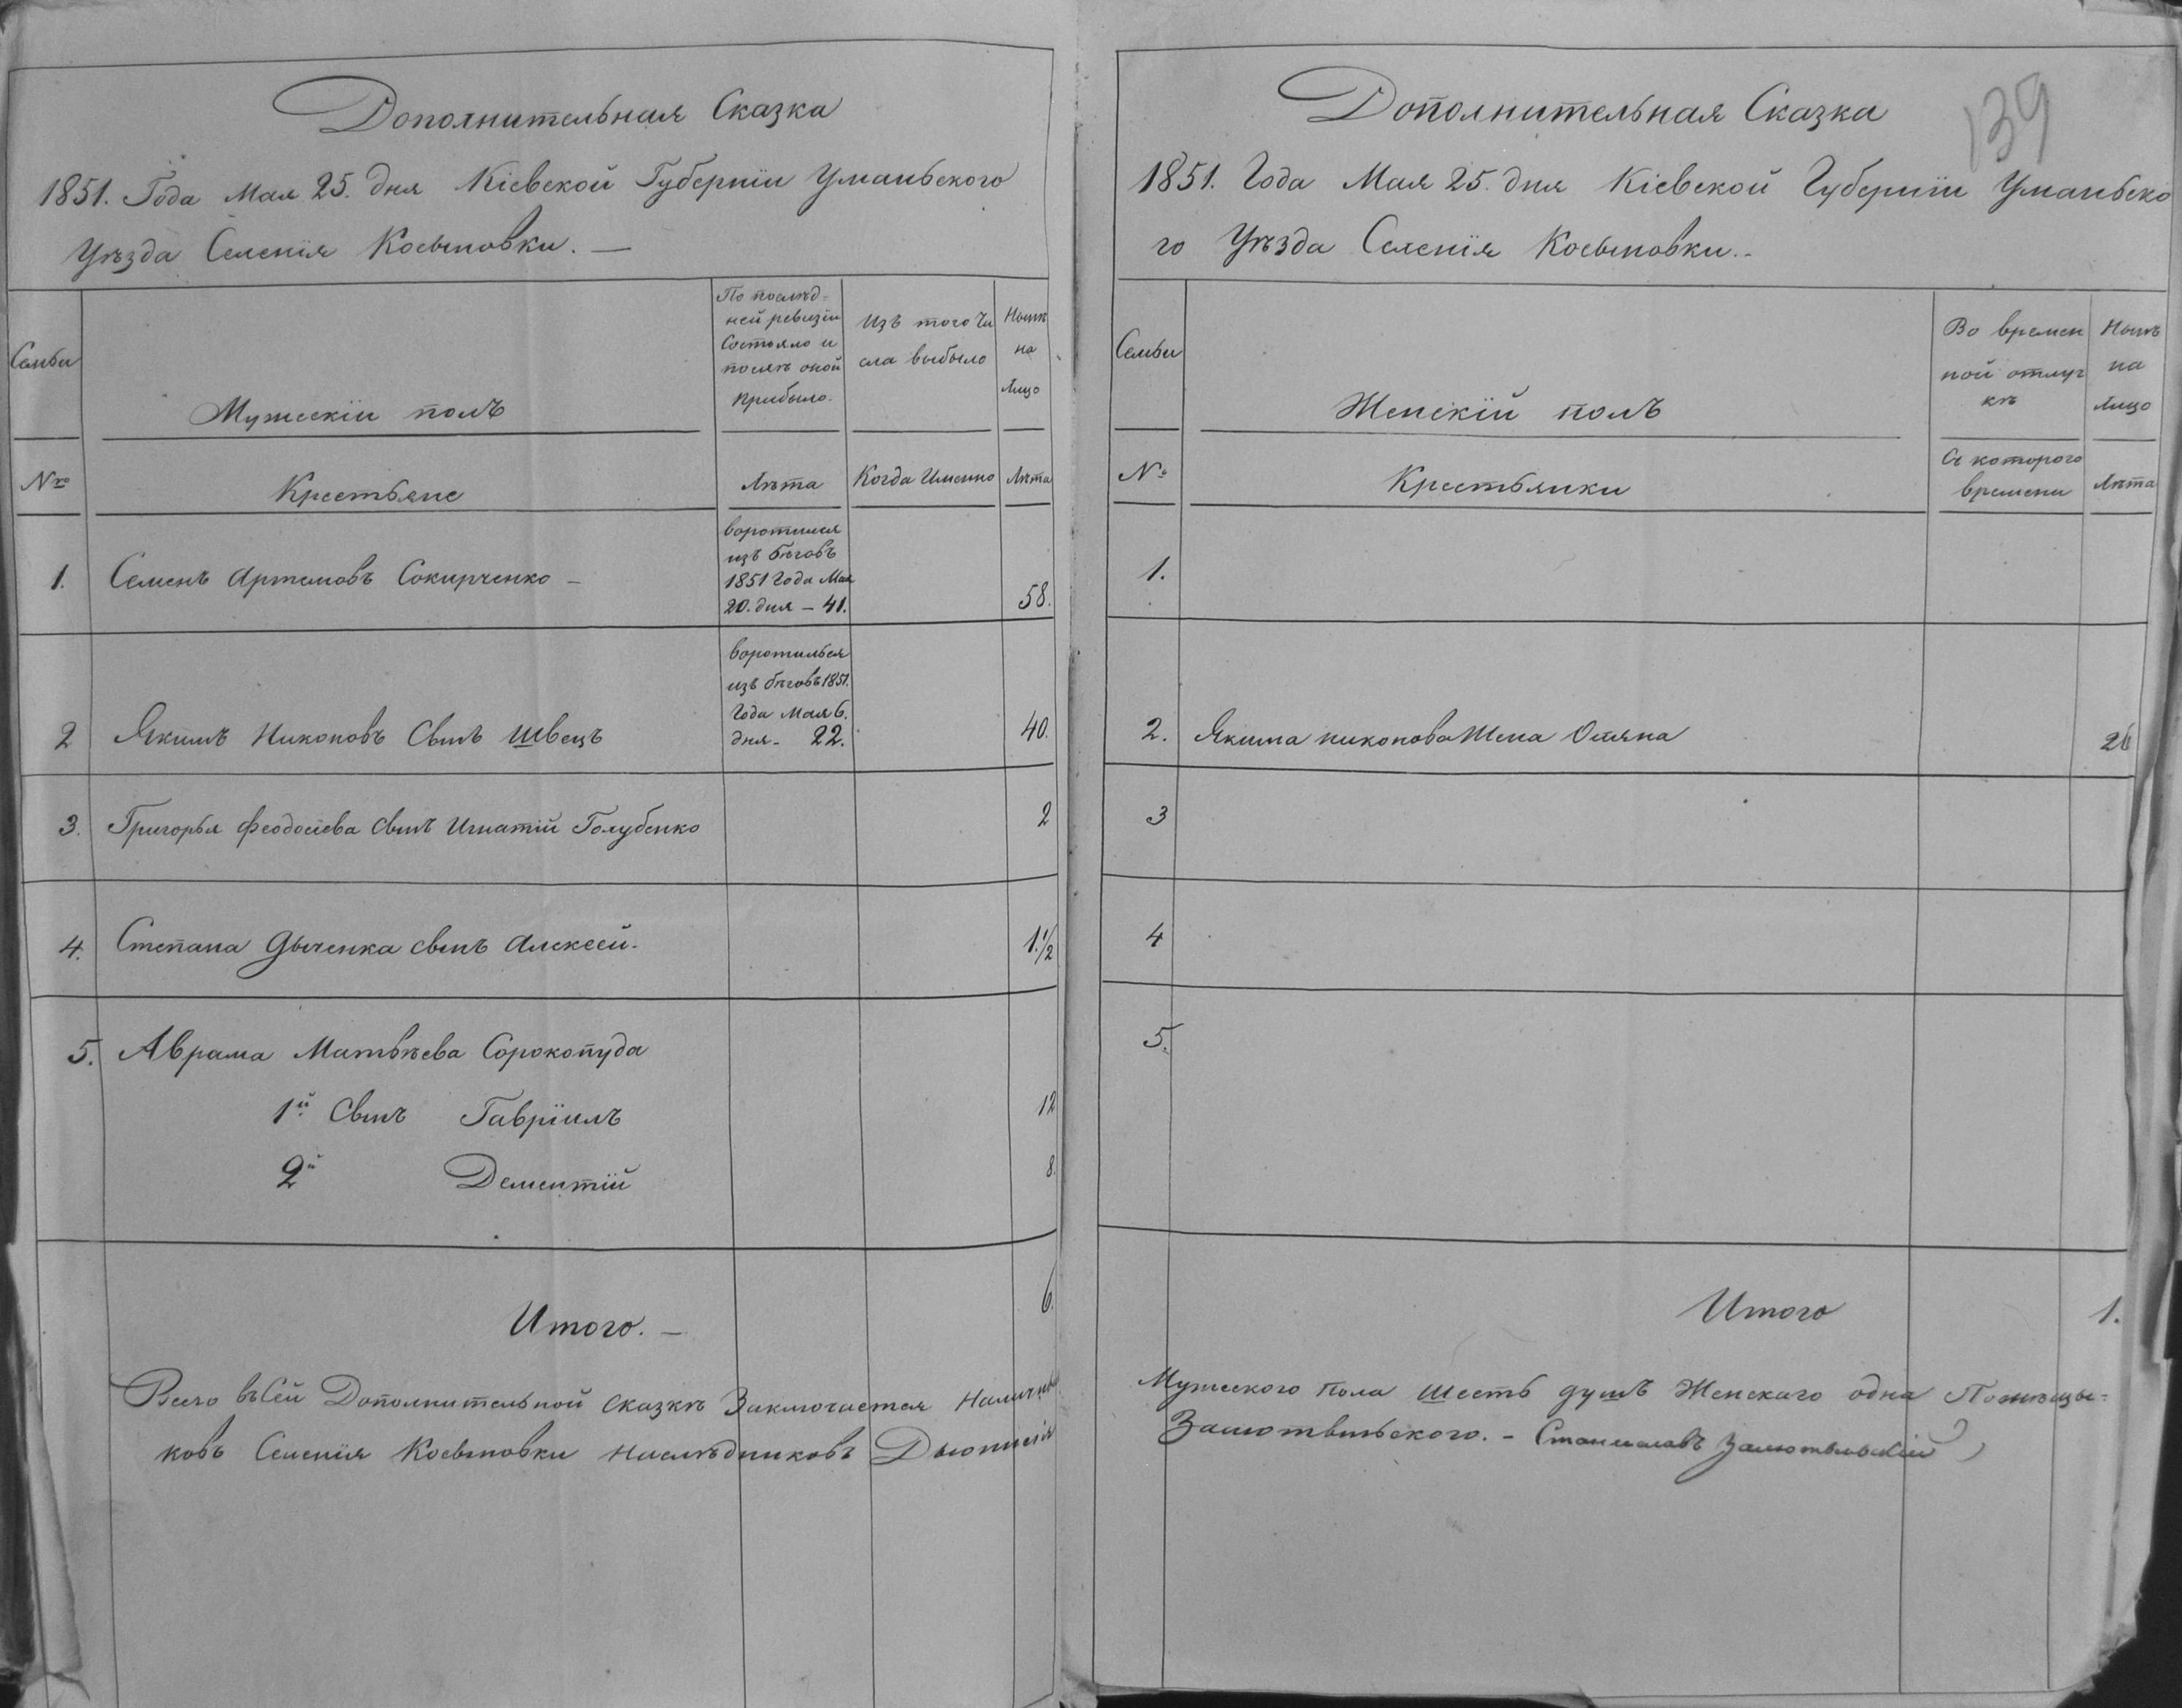 Дополнительная Сказка
1851. Года Мая 25. дня Кіевской Губерніи Уманьского
Уѣзда Селенія Косѣновки. —
Семьи
Мужескіи полъ
По послѣд=
ней ревизіи
Состояло и
послѣ оной
прибыло.
Изъ того чи
сла выбыло
Нынѣ
на
лицо
№
Крестьяне
Лѣта
Когда Именно
Лѣта
1.
Семенъ Артемовъ Сокирченко –
воротился
изъ бѣговъ
1851 Года Мая
20. дня – 41.
58.
2
Якимъ Никоновъ Сынъ Швецъ
воротилься
изъ бѣговъ 1851.
Года Мая 6.
дня – 22.
40.
3.
Григорья Феодосіева Сынъ Игнатій Голубенко
2
4.
Степана Дыченка Сынъ Алексей.
1.1/2
5.
Аврама Матвѣева Сорокопуда
1й Сынъ Гавріилъ
12
2й Дементій
8.
Итого. –
6.
Всего въ Сей Дополнительной сказкѣ Заключается Наличных
ковъ Селенія Косѣновки Наслѣдниковъ Дыонисія
Дополнительная Сказка
139
1851. Года Мая 25. дня Кіевской Губерніи Уманьско
го Уѣзда Селенія Косѣновки..
Семьи
Женскій полъ
Во времен
ной отлуч
кѣ
Нынѣ
на
лицо
№
Крестьянки
Съ которого
времени
Лѣта
1.
2.
Якима никонова Жена Отяна
26
3
4
5.
Итого
1.
Мужеского пола шесть душъ Женскаго одна Помѣщы=
Замотвиньского. – Станиславъ